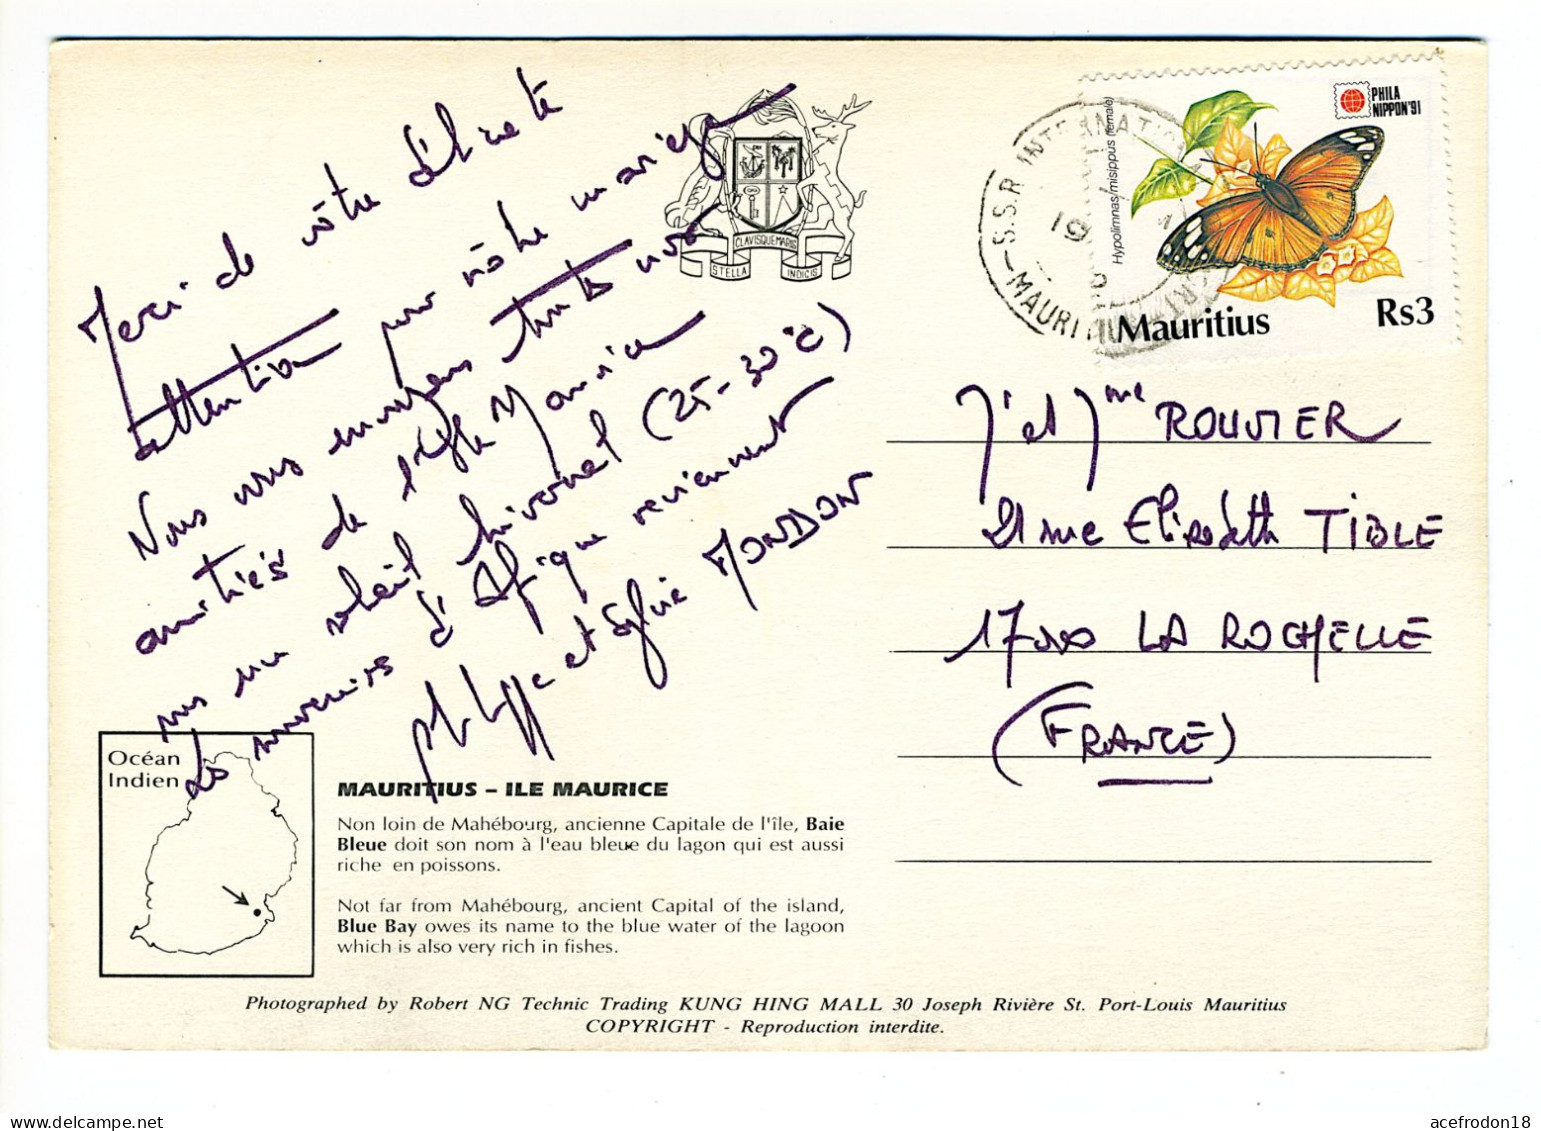 Merci de vôtre délicate
attention pour nôtre mariage
Nous vous envoyons toutes nos
amitiés de l'Ile Maurice
sous un soleil hivernal (25-30°c)
Les souvenirs d'Afrique reviennent
Philippe et Sylvie MONDON
CLAVISQUE MARIS
STELLA INDICIS
S.S.R INTERNATIO
MAURITIUS
Hypolimnas misippus (female)
PHILA
NIPPON'91
Mauritius
Rs3
Mr et Mme ROUVIER
21 rue Elisabeth TIBLE
17000 LA ROCHELLE
(FRANCE)
Océan
Indien
MAURITIUS – ILE MAURICE
Non loin de Mahébourg, ancienne Capitale de l'île, Baie
Bleue doit son nom à l'eau bleue du lagon qui est aussi
riche en poissons.
Not far from Mahébourg, ancient Capital of the island,
Blue Bay owes its name to the blue water of the lagoon
which is also very rich in fishes.
Photographed by Robert NG Technic Trading KUNG HING MALL 30 Joseph Rivière St. Port-Louis Mauritius
COPYRIGHT - Reproduction interdite.
acefrodon18